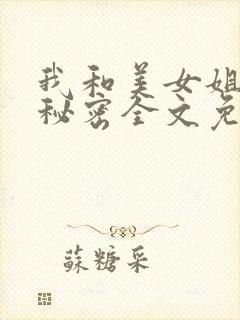 我和美女姐
秘密全文免
蘇糖采